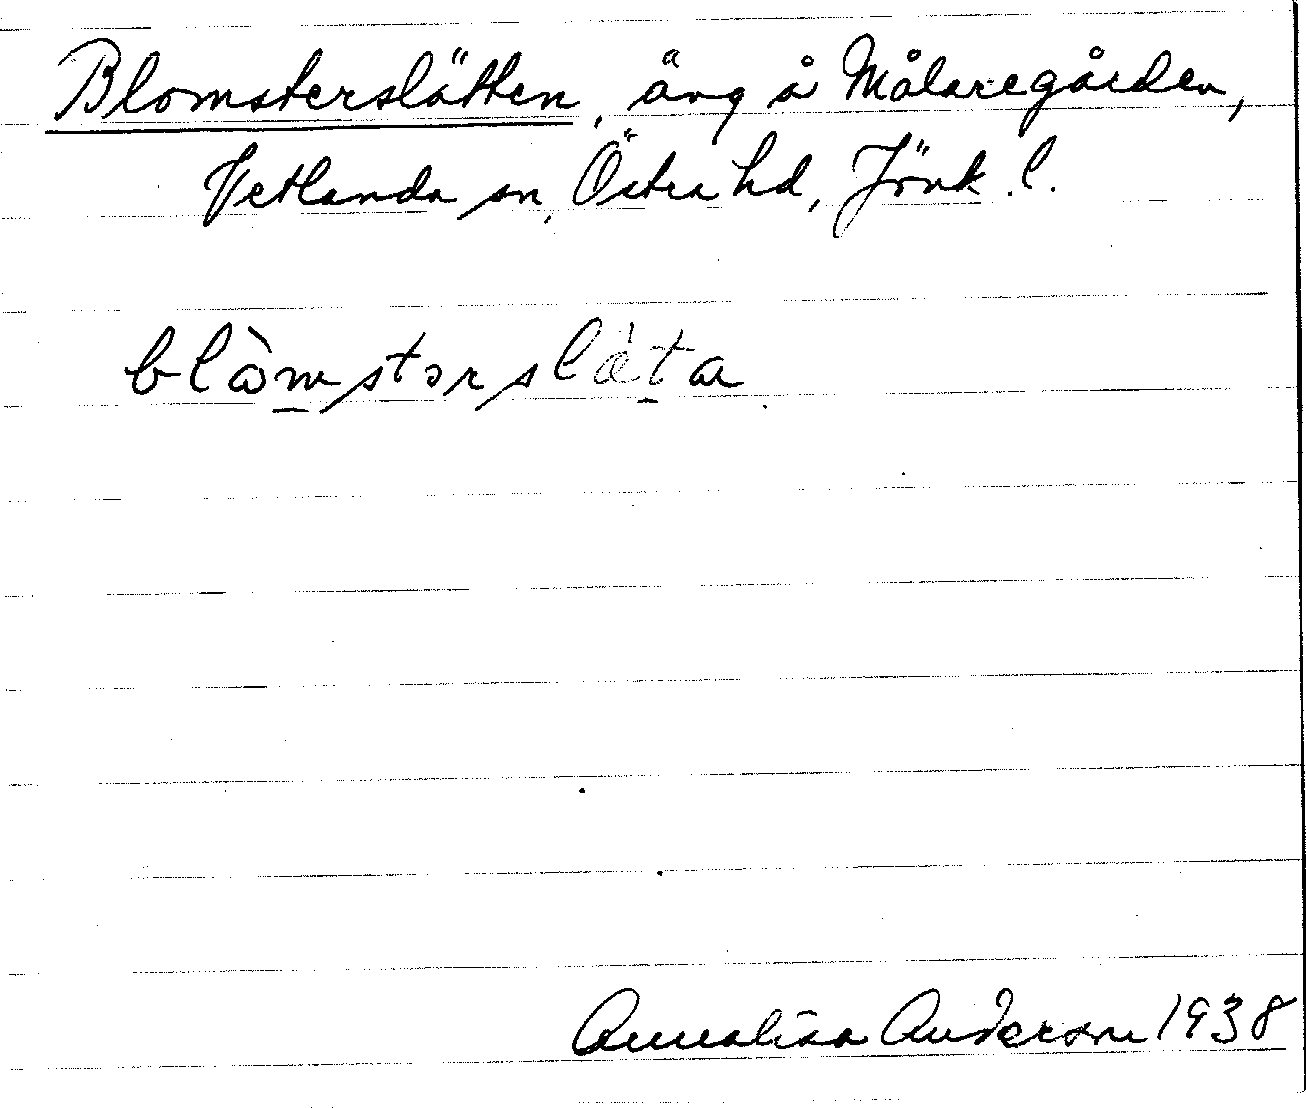 Blomsterslätten, äng å Målaregården,
Vetlanda sn, Östra hd, Jönk. l.
blòmstərslàta
Annalisa Anderson 1938